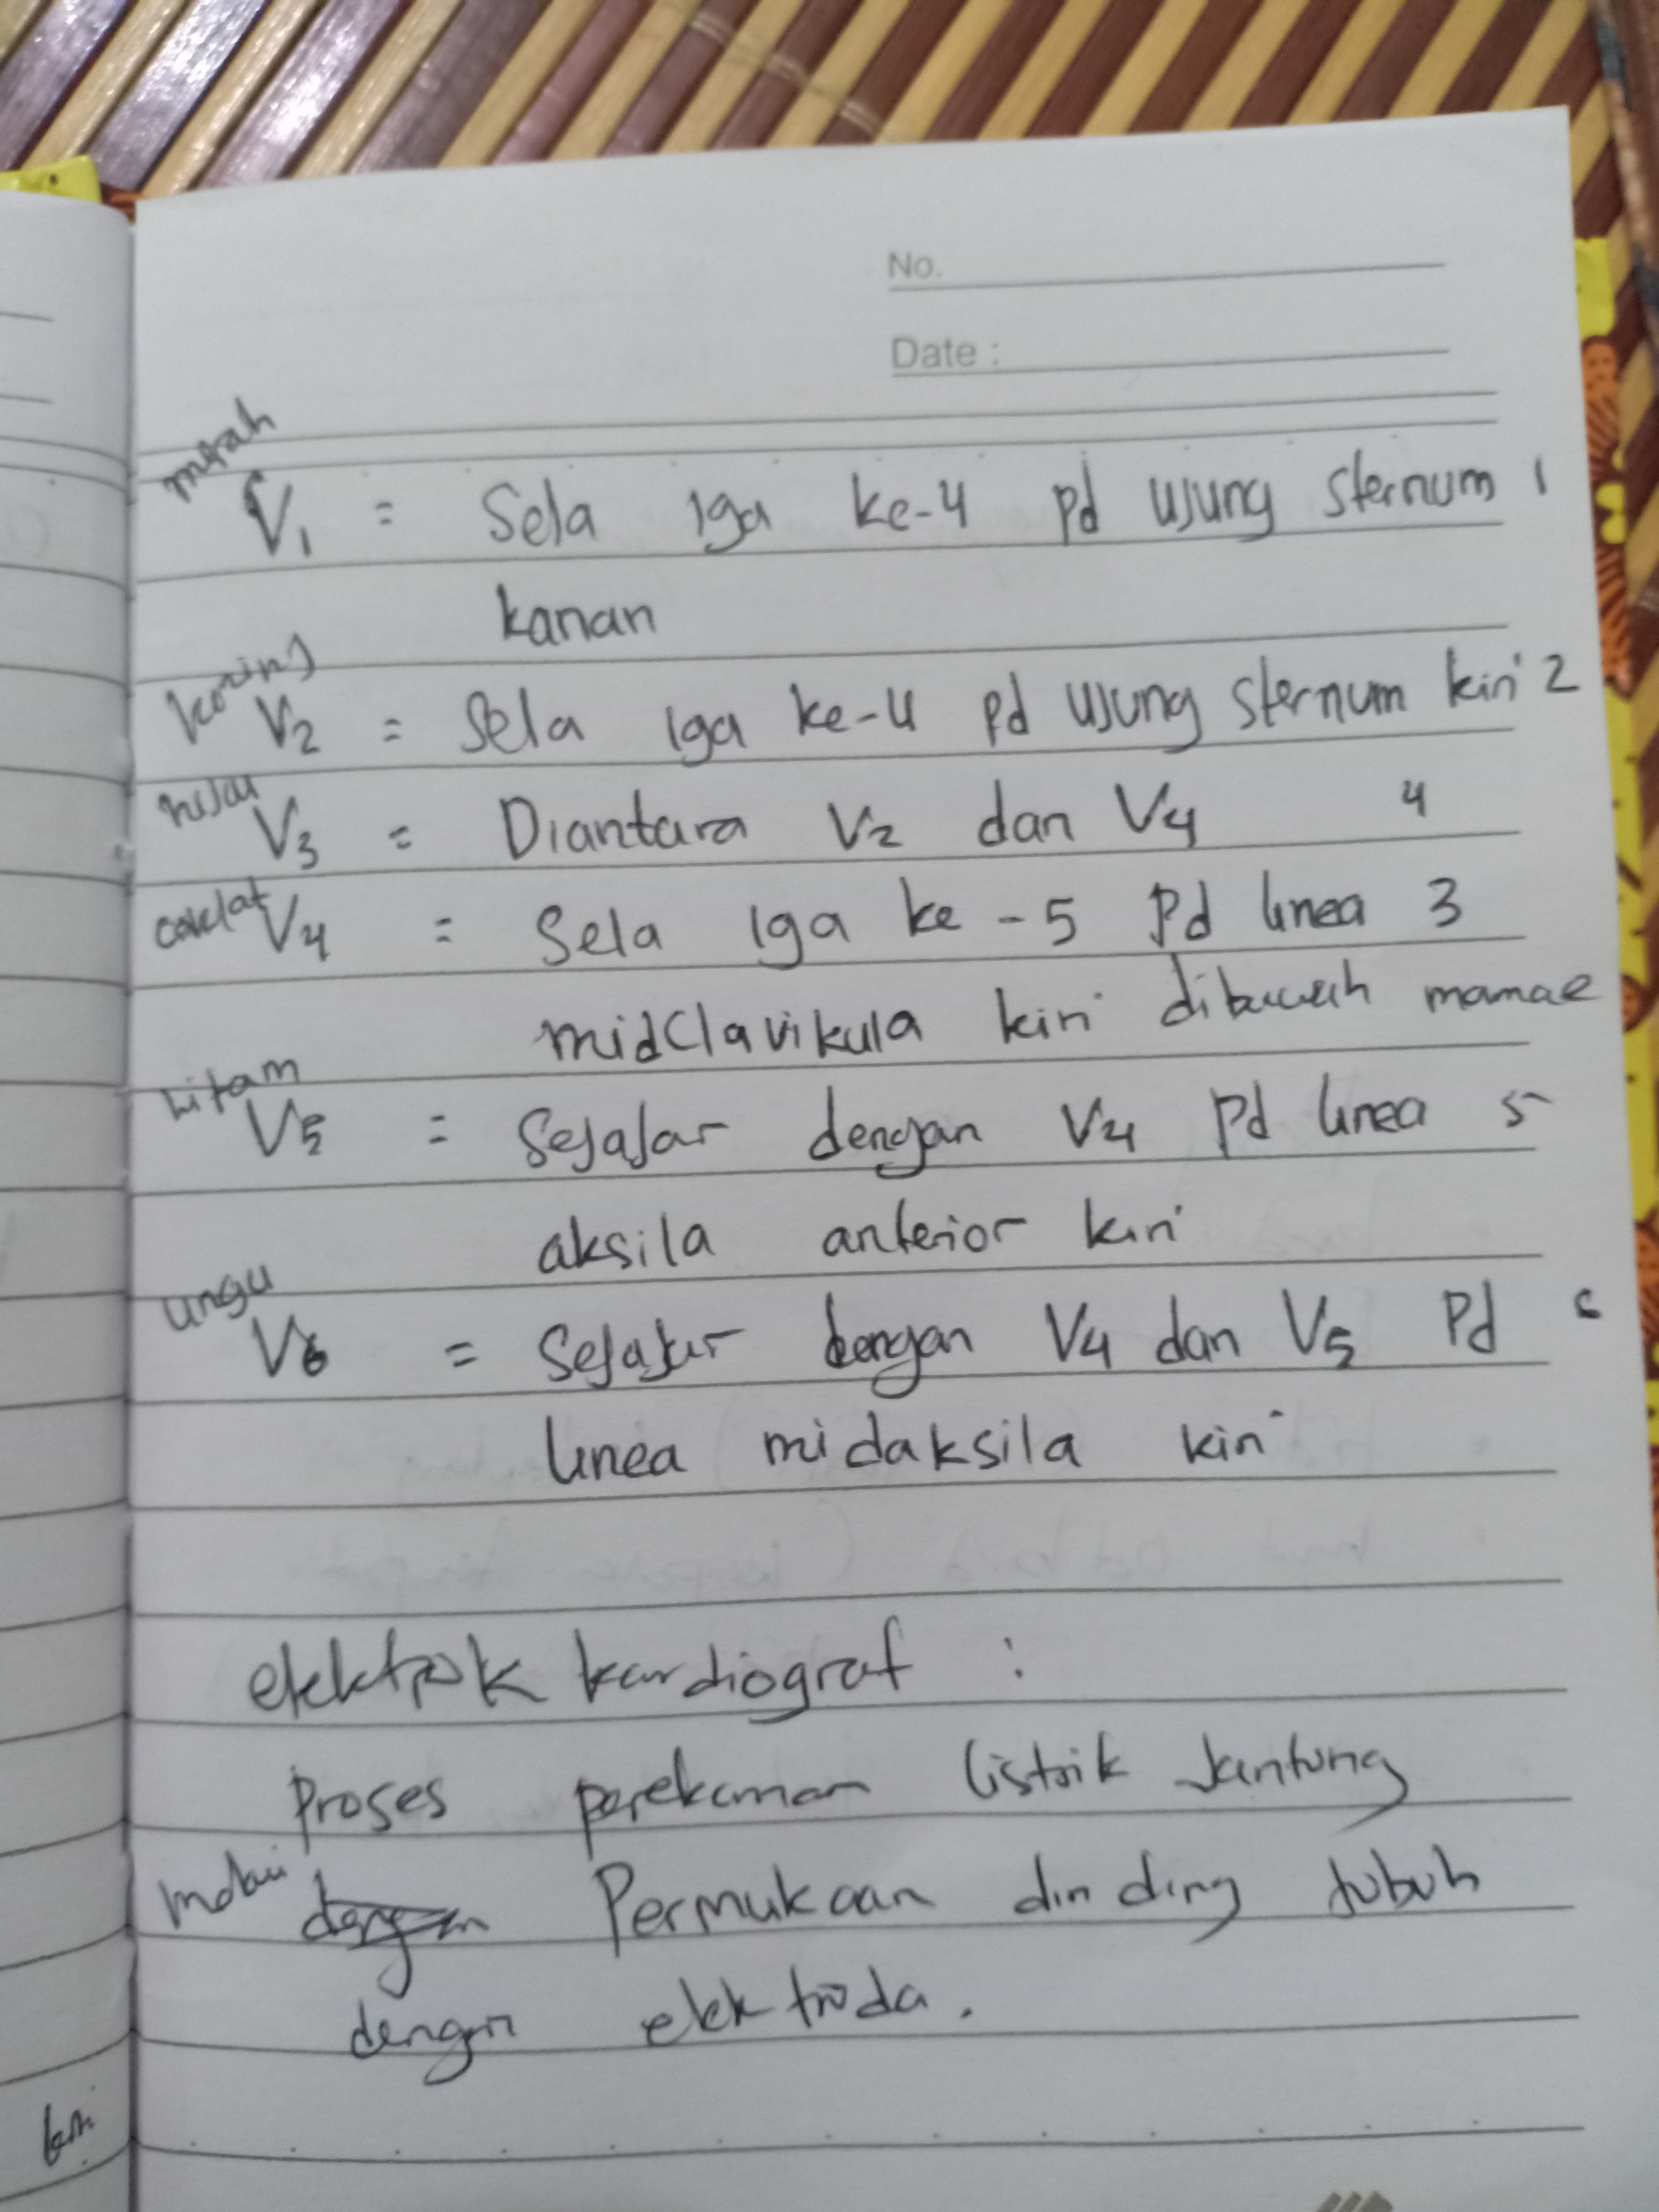 No.
Date :
merah
V1 = Sela iga ke-4 pd ujung sternum 1
kanan
kuning
V2 = Sela iga ke-4 pd ujung sternum kiri 2
hijau
V3 = Diantara V2 dan V4 4
coklat V4 = Sela iga ke-5 Pd linea 3
midclavikula kiri dibawah mamae
hitam
V5 = Sejajar dengan V4 Pd linea 5
aksila anterior kiri
ungu
V6 = Sejajar dengan V4 dan V5 Pd
linea midaksila kiri
elektrokkardiograf :
Proses perekaman listrik Jantung
dengan Permukaan dinding tubuh
dengan elektroda.